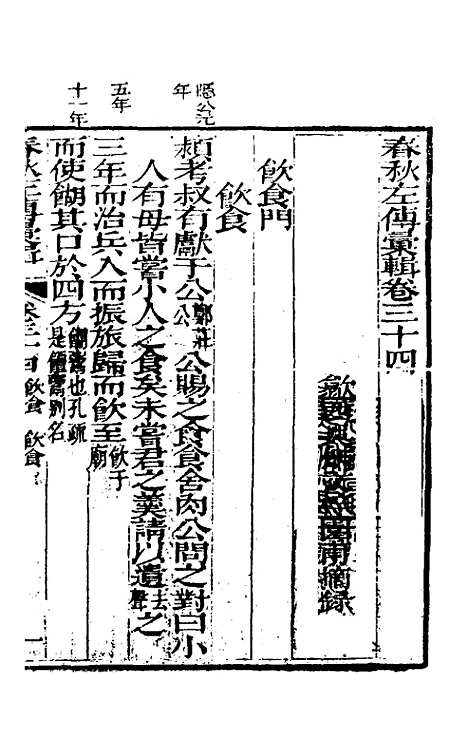 春秋左傳彙輯卷三十四
甫摘録
飲食門
飲食
隱公元年
潁考叔有獻于公鄭莊公公賜之食食舍肉公問之對曰小
人有母皆嘗小人之食矣未嘗君之羹請以遺去聲之
五年
三年而治兵入而振旅歸而飲至飲于廟
十一年
而使餬其口於四方餬鬻也孔疏是饘鬻別名
春秋左傳彙輯 卷三十四 飲食 飲食 一